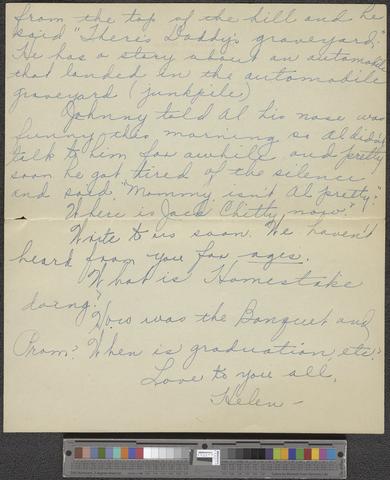 from the top of the hill and he
said "There's Daddy's graveyard."
He has a story about an automobile
that landed in the automobile
graveyard (junkpile)
Johnny told Al his nose was
funny this morning so Al didn't
talk to him for awhile and pretty
soon he got tired of the silence
and said "Mommy isn't Al pretty?"
Where is Jack Chitty now?
Write to us soon. We haven't
heard from you for ages.
What is Homestake
doing?
How was the Banquet and
Prom? When is graduation, etc?
Love to you all,
Helen -